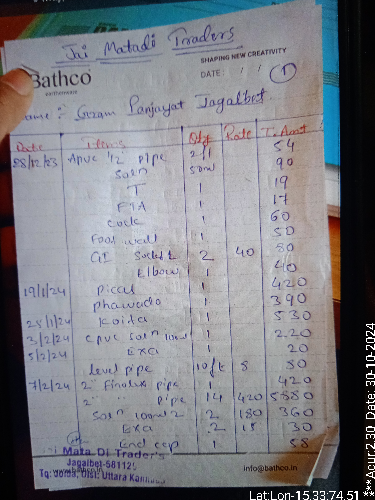 Jai Matadi Traders
Bathco
earthenware
SHAPING NEW CREATIVITY
DATE : / /
1
Name :- Gram Panjayat Jagalbet
Date Items Qty Rate T. Amt
08/12/23 Apvc 1/2 pipe 2 54
Soln 50ml 90
T 1 19
FTA 1 17
Cock 1 60
Foot wall 1 50
GI Socket 2 40 80
Elbow 1 40
19/1/24 Picas 1 420
Phawada 1 390
25/1/24 Koita 1 530
3/2/24 cpvc Soln 100ml 1 220
5/2/24 Exa 1 20
level pipe 10ft 8 80
7/2/24 2" Finolux pipe 1 420
2" " pipe 14 420 5880
Soln 100ml 2 2 180 360
Exa 2 15 30
End cap 1 58
Mata Di Trader's
Jagalbet-581129
Tq: Joida, Dist: Uttara Kannada
info@bathco.in
Lat:Lon-15.33:74.51 ***Acur2.30 Date: 30-10-2024